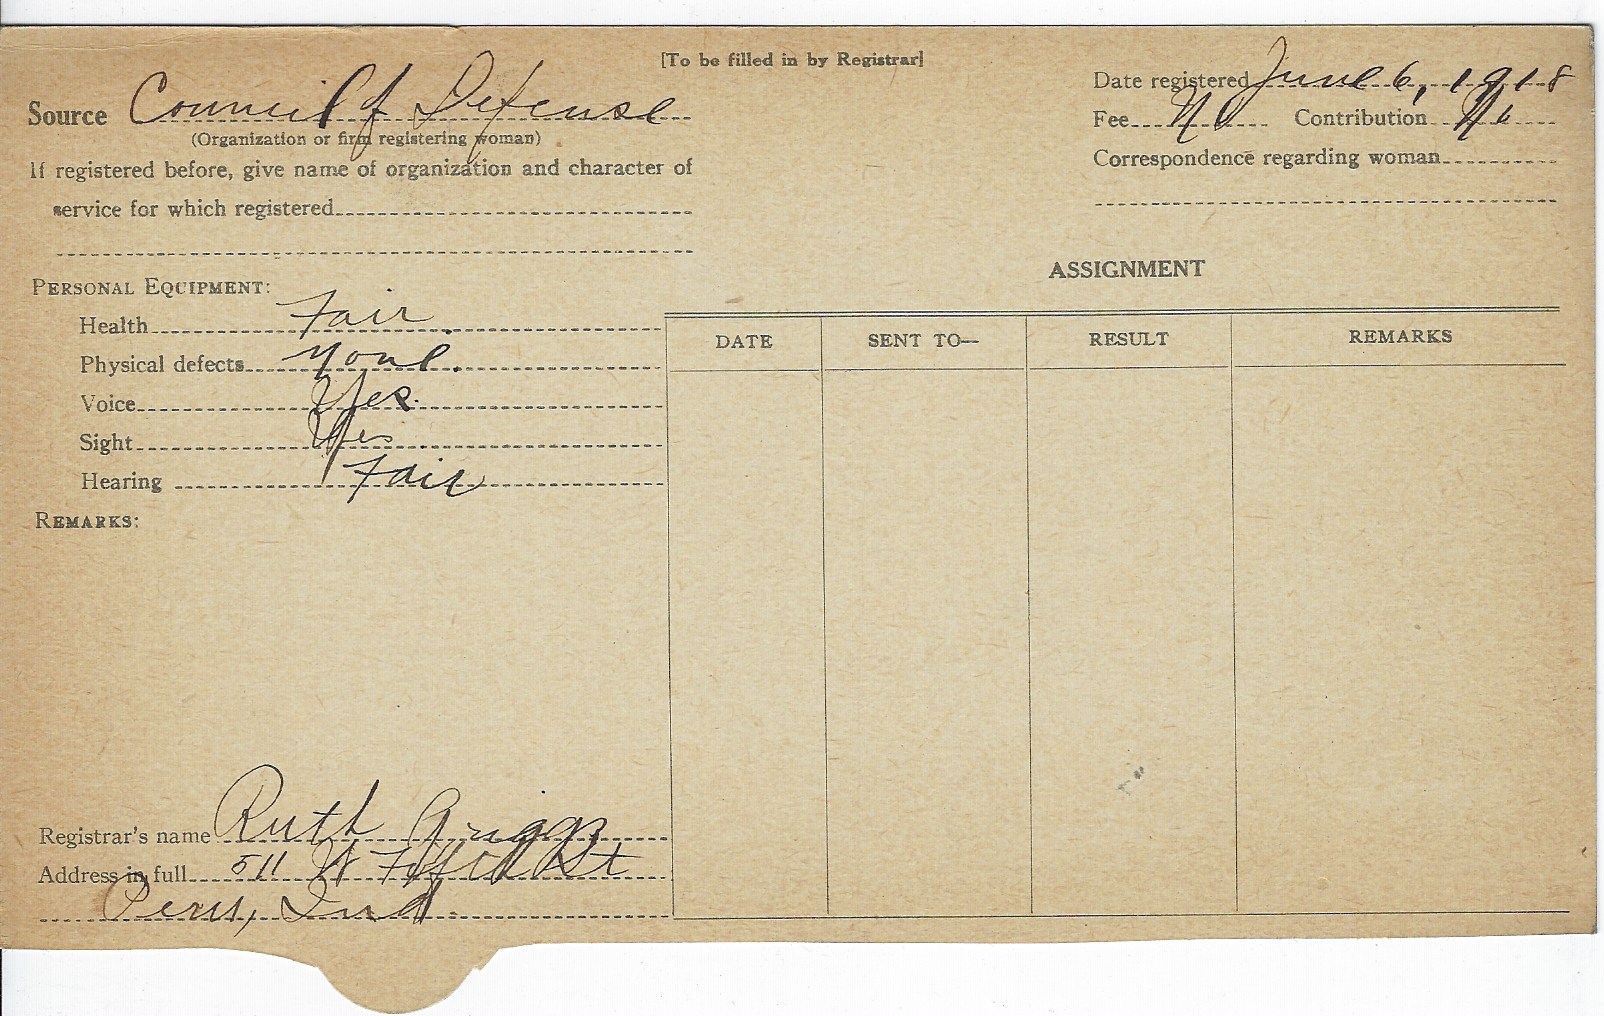 [To be filled in by Registrar]
Source Council of Defense
(Organization or firm registering woman)
If registered before, give name of organization and character of
service for which registered
Date registered June 6, 1918
Fee No Contribution No
Correspondence regarding woman
PERSONAL EQUIPMENT:
Health Fair
Physical defects None.
Voice Yes.
Sight Yes
Hearing Fair
REMARKS:
ASSIGNMENT
DATE SENT TO— RESULT REMARKS
Registrar's name Ruth Griggs
Address in full 511 W St
Peru, Ind.